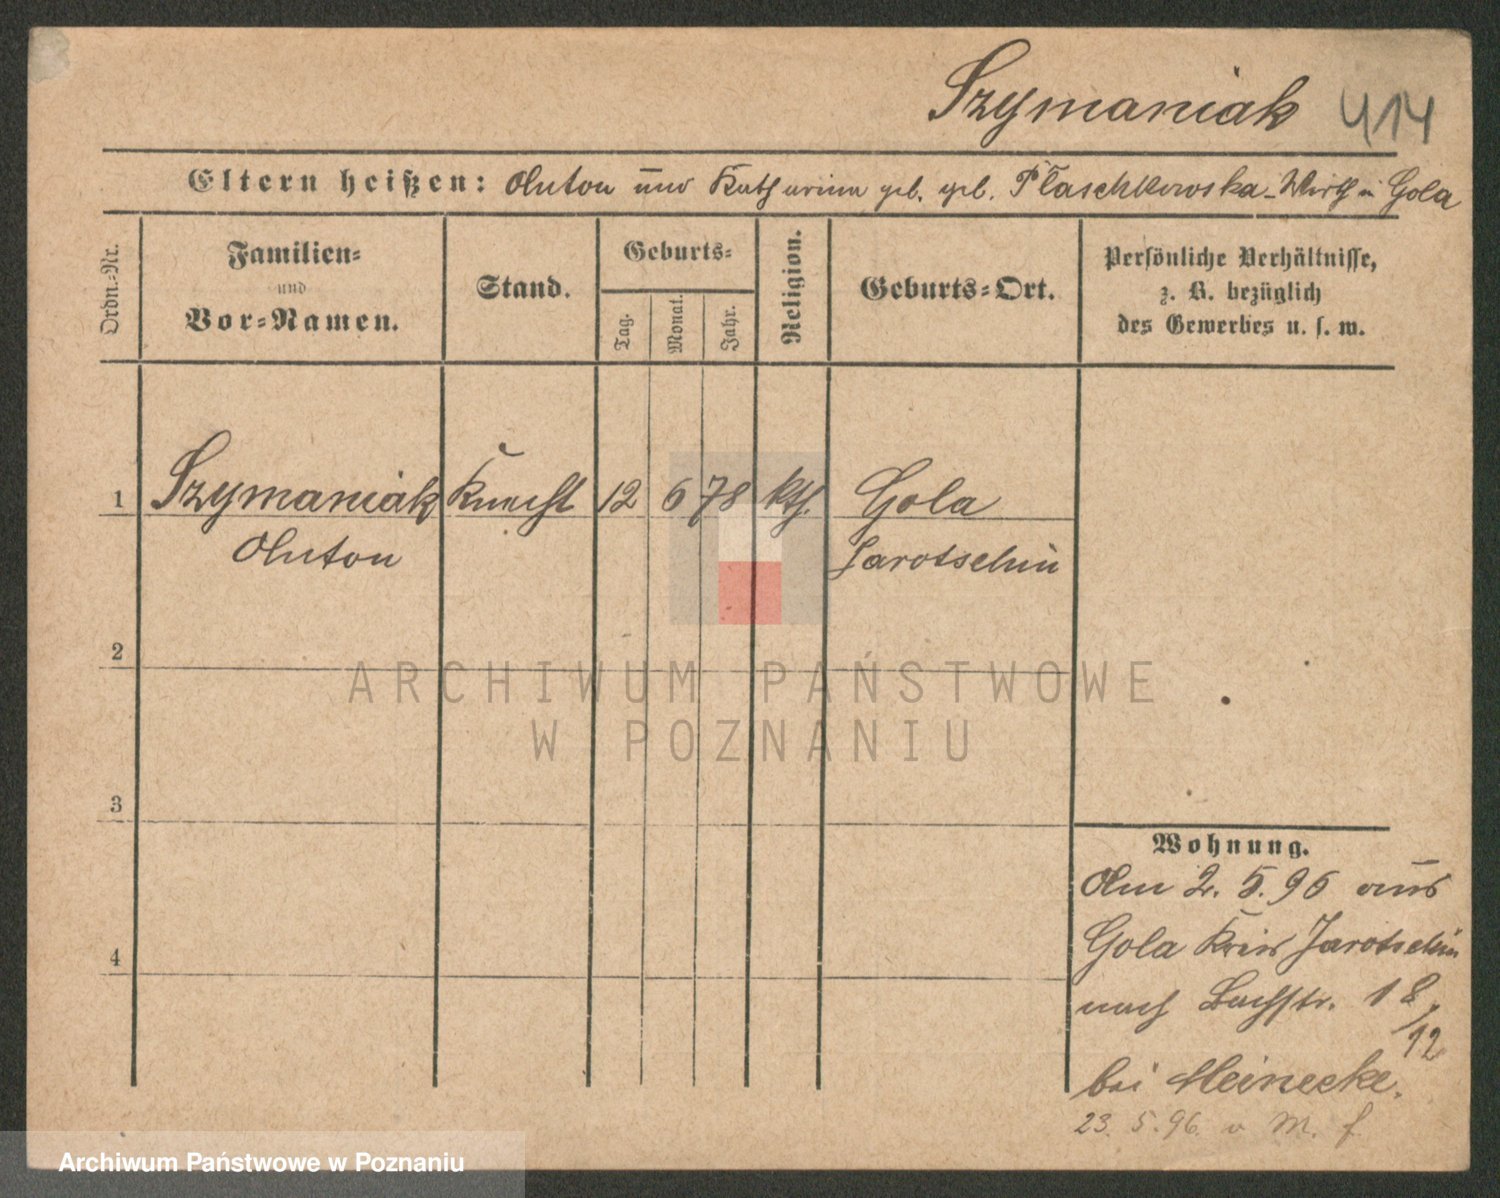 Szymaniak 414
Eltern heißen: Anton und Katharina geb. geb. Plaschkowska - Wirth in Gola
Ordn.-Nr.
Familien-
und
Vor-Namen.
Stand.
Geburts-
Tag.
Monat.
Jahr.
Religion.
Geburts-Ort.
Persönliche Verhältnisse,
z. B. bezüglich
des Gewerbes u. s. w.
1 Szymaniak Knecht 12 6 78 kth. Gola
Anton Jarotschin
2
3
4
Wohnung.
Am 2. 5. 96 aus
Gola Kreis Jarotschin
nach Bachstr. 18/
12
bei Meinecke.
23. 5. 96. v M. f
ARCHIWUM PAŃSTWOWE
W POZNANIU
Archiwum Państwowe w Poznaniu